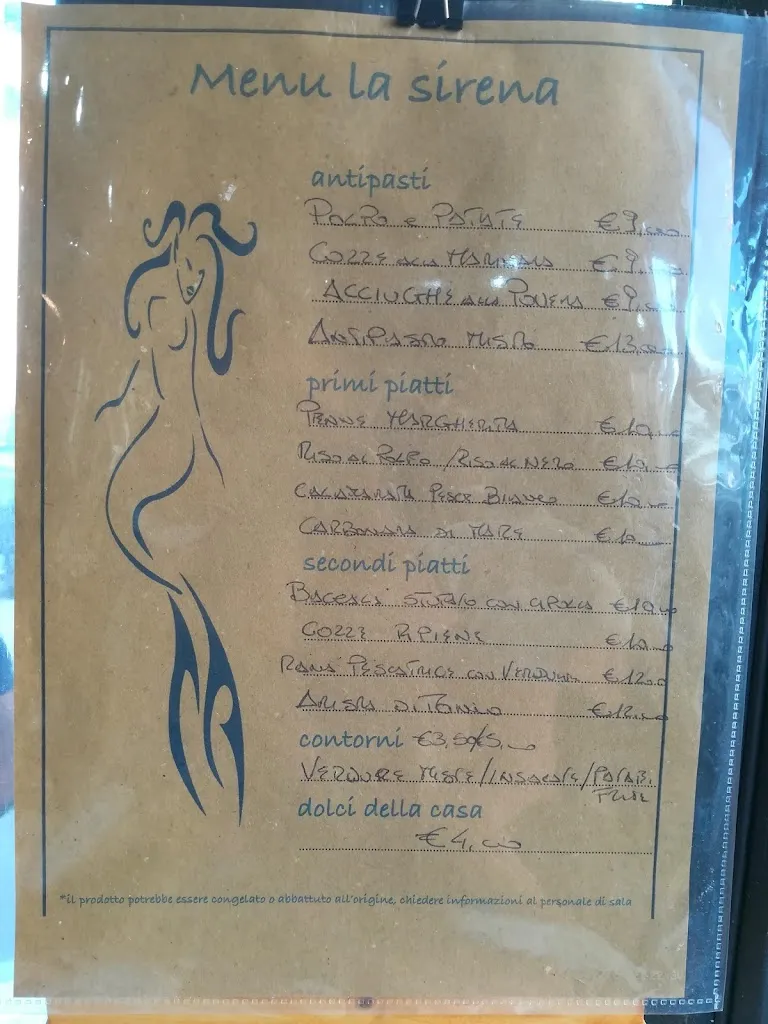 Menu la sirena
antipasti
POLPO e PATATE €9,00
COZZE alla MARINARA €9,00
ACCIUGHE alla POVERA €9,00
ANTIPASTO MISTO €13,00
primi piatti
PENNE MARGHERITA €10,00
RISO al POLPO / RISO al NERO €10,00
CALAMARATA PESCE BIANCO €10,00
CARBONARA DI MARE €10
secondi piatti
BACCALÀ STUFATO CON CIPOLLA €10,00
COZZE RIPIENE €10,00
RANA PESCATRICE con VERDURA €12,00
ARISTA DI TONNO €12,00
contorni €3,50/5,00
VERDURE MISTE/INSALATE/PATATE
FRITTE
dolci della casa
€4,00
*il prodotto potrebbe essere congelato o abbattuto all'origine, chiedere informazioni al personale di sala